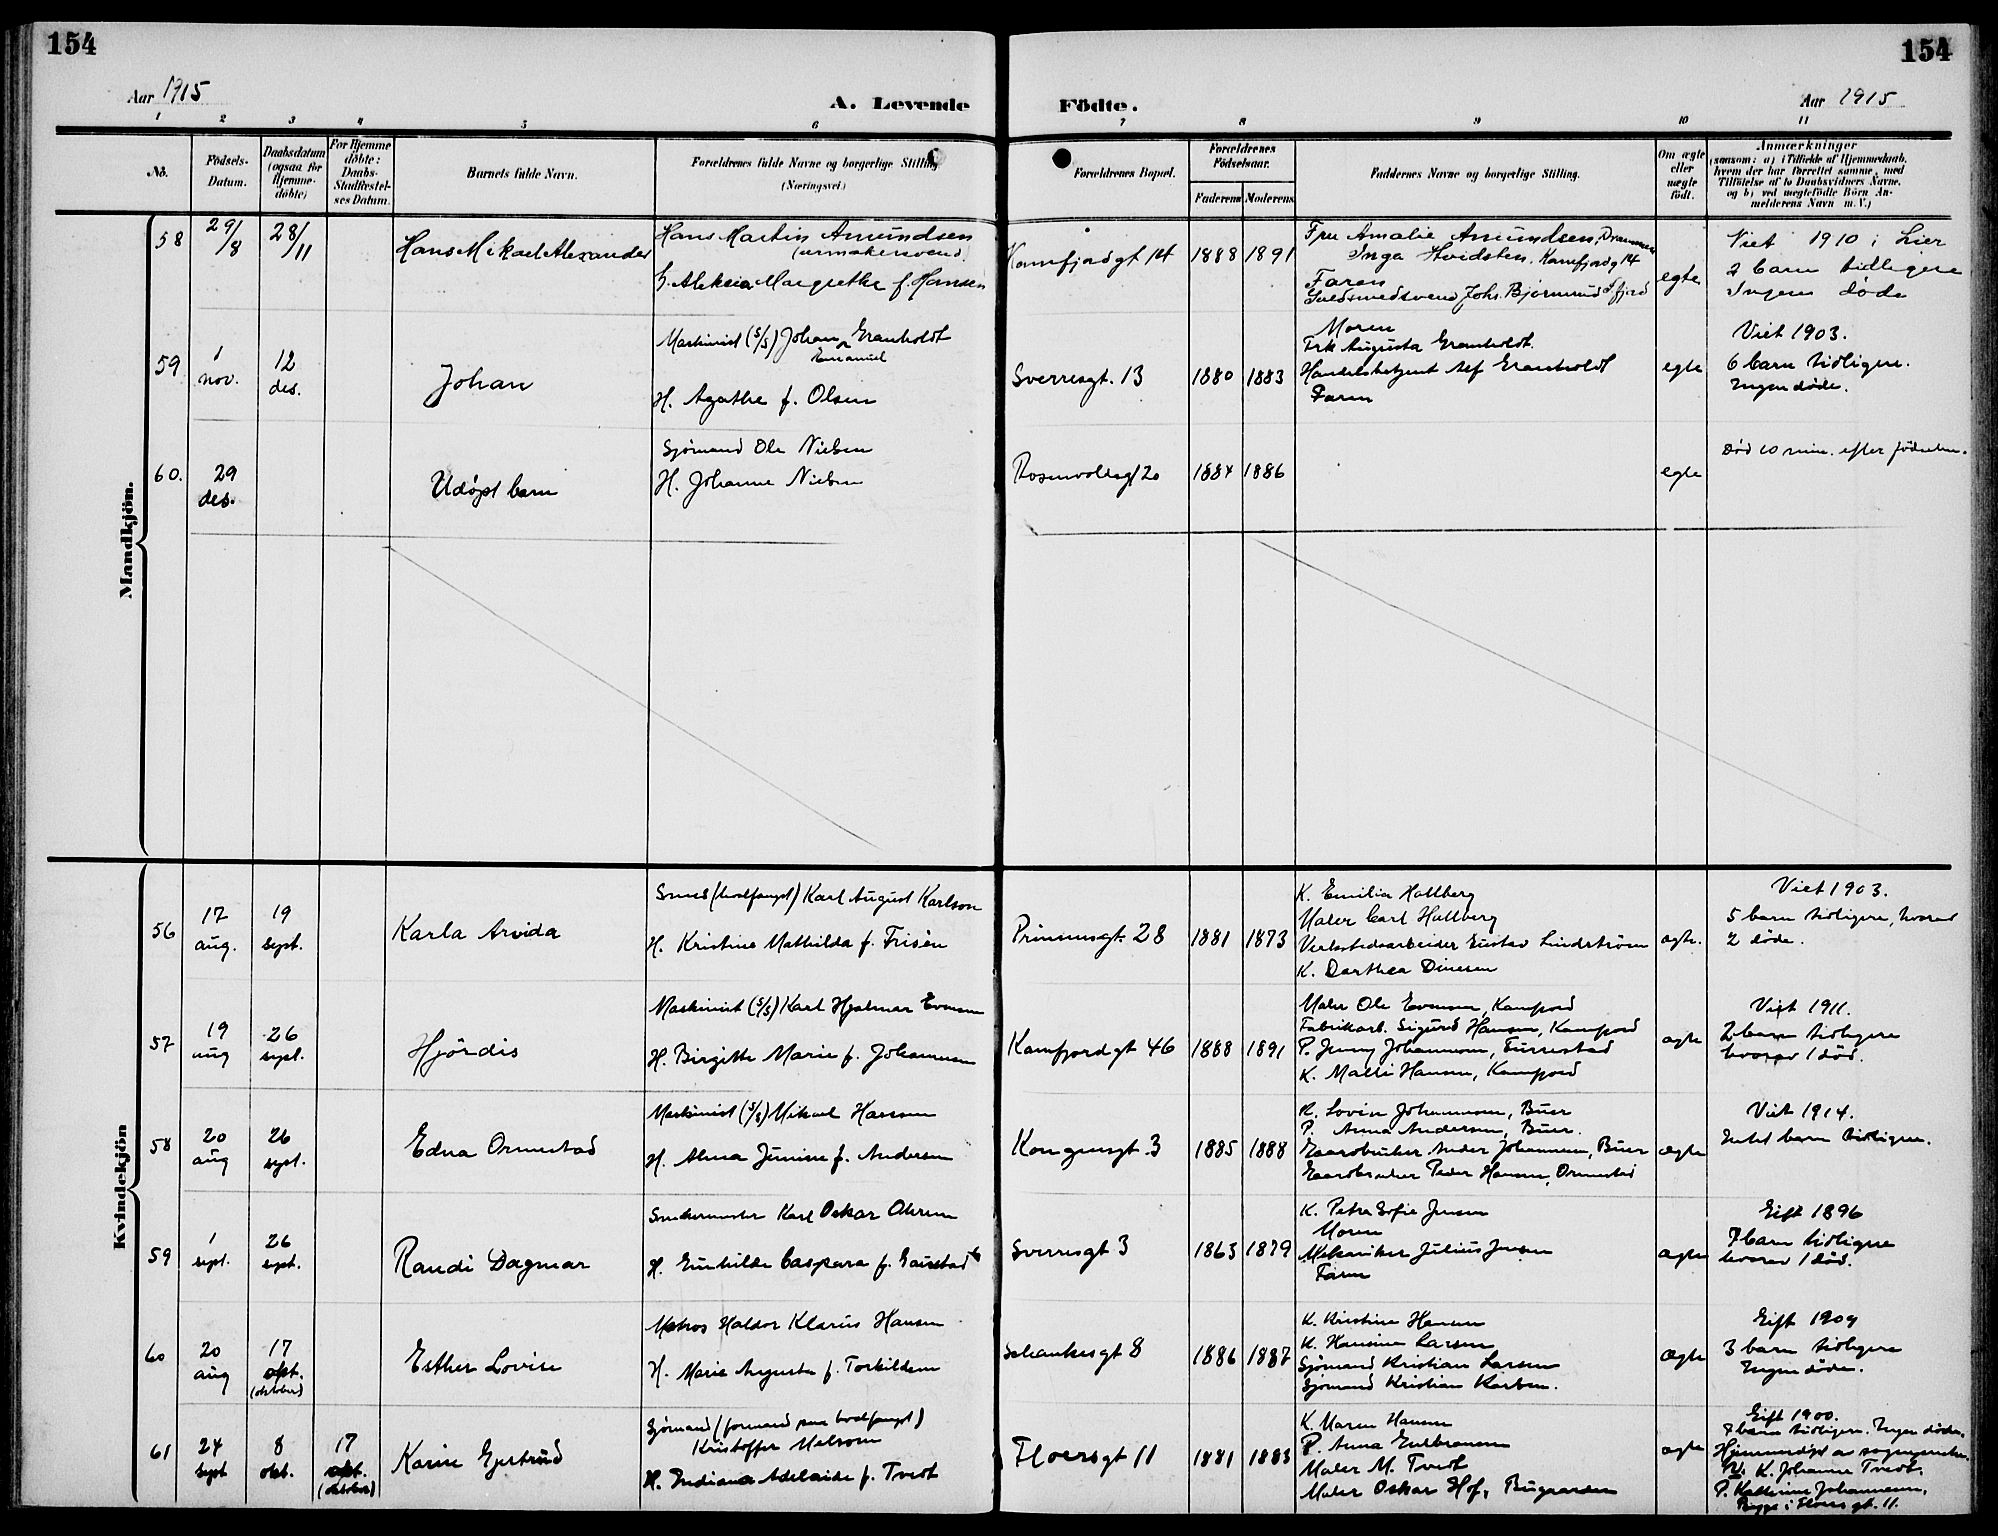 154
154
Aar 1915
A. Levende
Födte.
Aar 1915
1 2 3 4 5 6 7 8 9 10 11
No.
Födsels-
Datum.
Daabsdatum
(ogsaa for
Hjemme-
döbte)
For Hjemme
döbte:
Daabs-
Stadfæstel-
ses Datum.
Barnets fulde Navn.
Forældrenes fulde Navne og borgerlige Stilling
(Næringsvei.)
Forældrenes Bopæl.
Forældrenes
Födselsaar.
Faderens Moderens
Faddernes Navne og borgerlige Stilling.
Om ægte
eller
uægte
födt.
Anmærkninger
(saasom: a) i Tilfælde af Hjemmedaab,
hvem der har forrettet samme, med
Tilföielse af to Daabsvidners Navne,
og b) ved uægtefödte Börn An-
melderens Navn m. V.)
Mandkjön.
58
29/8
28/11
Hans Mikael Alexander
Hans Martin Amundsen
(urmakersvend)
H. Aleksia Margrethe f. Hansen
Kamfjordgt 14
1888 1891
Fru Amalie Amundsen, Drammen
Inga Hvidsten, Kamfjordg 14
Faren
Guldsmedsvend Johs. Bjørnrud
egte
Viet 1910 i Lier
2 barn tidligere
Ingen døde
59
1
nov.
12
des.
Johan
Maskinist (S/S) Johan Granholdt
Emanuel
H. Agathe f. Olsen
Sverresgt. 13
1880 1883
Moren
Frk Augusta Granholdt.
Alf Granholdt
Faren
egte
Viet 1903.
6 barn tidligere.
Ingen døde.
60.
29
des.
Udøpt barn
Sjømand Ole Nielsen
H. Johanne Nielsen
Rosenvoldsgt 20
1884 1886
egte
Død 10 min. efter fødselen.
Kvindekjön
56
17
aug.
19
sept.
Karla Arvida
Smed (hvalfangst) Karl August Karlson
H. Kristine Mathilda f. Frisén
Prinsensgt. 28
1881 1873
K. Emilia Hallberg
Maler Carl Hallberg
Verkstedsarbeider Gustav Lindstrøm
K. Dorthea Dinesen
ægte.
Viet 1903.
5 barn tidligere, hvorav
2 døde.
57
19
aug
26
sept.
Hjördis
Maskinist (S/S) Karl Hjalmar Evensen
H. Birgitte Marie f. Johannesen
Kamfjordgt 46
1888 1891
Maler Ole Evensen, Kamfjord
Fabrikarb. Sigurd Hansen, Kamfjord
P. Jenny Johannesen, Furustad
K. Malli Hansen, Kamfjord
ægte
Viet 1911.
2 barn tidligere
hvorav 1 død.
58
20
aug
26
sept.
Edna Ormestad
Maskinist (S/S) Mikael Hansen
H. Alma Junise f. Andersen
Kongensgt. 3
1885 1888
K. Lovise Johannesen, Buer
P. Anna Andersen, Buer.
Gaardbruker Anders Johannesen, Buer
Gaardbruker Peder Hansen, Ormestad
ægte
Viet 1914.
Intet barn tidligere.
59
1
sept.
26
sept.
Randi Dagmar
Snekkermester Karl Oskar Olsen
H. Gunhilde Caspara f. Gaustad
Sverresgt 3
1863 1879
K. Petra Sofie Jensen
Moren
Mekaniker Julius Jensen
Faren
ægte
Gift 1896
7 barn tidligere
hvorav 1 død.
60
20
aug
17
okt.
(oktober)
Esther Lovise
Matros Haldor Klarius Hansen
H. Marie Augusta f. Torkildsen
Schankesgt 8
1886 1887
K. Kristine Hansen
K. Hansine Larsen
Sjømand Kristian Larsen
Sjømand Kristian Karlsen.
Ægte
Gift 1909
3 barn tidligere
Ingen døde.
61
24
sept
8
okt.
17
okt.
(oktober)
Karin Gjertrud
Sjømand (formand paa hvalfangst)
Kristoffer Melsom
H. Indiana Adelaide f. Tvedt
Floersgt 11
1881 1883
K. Maren Hansen
P. Anna Gulbransen
Maler M. Tvedt
Maler Oskar Hof, Bugaarden
ægte
Gift 1900.
7 barn tidligere. Ingen døde.
Hjemmedøpt av sogneprest
V. K. Johanne Tvedt,
P. Kathrine Johannesen,
Begge i Floers gt. 11.